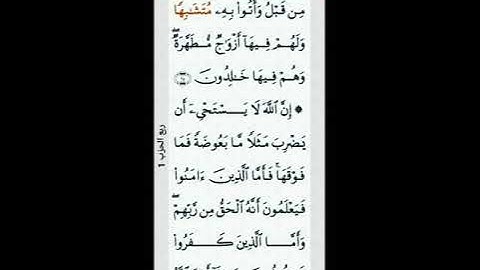 مِن قَبْلُ وَأُتُوا۟ بِهِۦ مُتَشَـٰبِهًا
وَلَهُمْ فِيهَآ أَزْوَٰجٌ مُّطَهَّرَةٌ ۖ
وَهُمْ فِيهَا خَـٰلِدُونَ
۞ إِنَّ ٱللَّهَ لَا يَسْتَحْىِۦٓ أَن
يَضْرِبَ مَثَلًا مَّا بَعُوضَةً فَمَا
فَوْقَهَا ۚ فَأَمَّا ٱلَّذِينَ ءَامَنُوا۟
فَيَعْلَمُونَ أَنَّهُ ٱلْحَقُّ مِن رَّبِّهِمْ ۖ
وَأَمَّا ٱلَّذِينَ كَفَرُوا۟
ربع الحزب 1